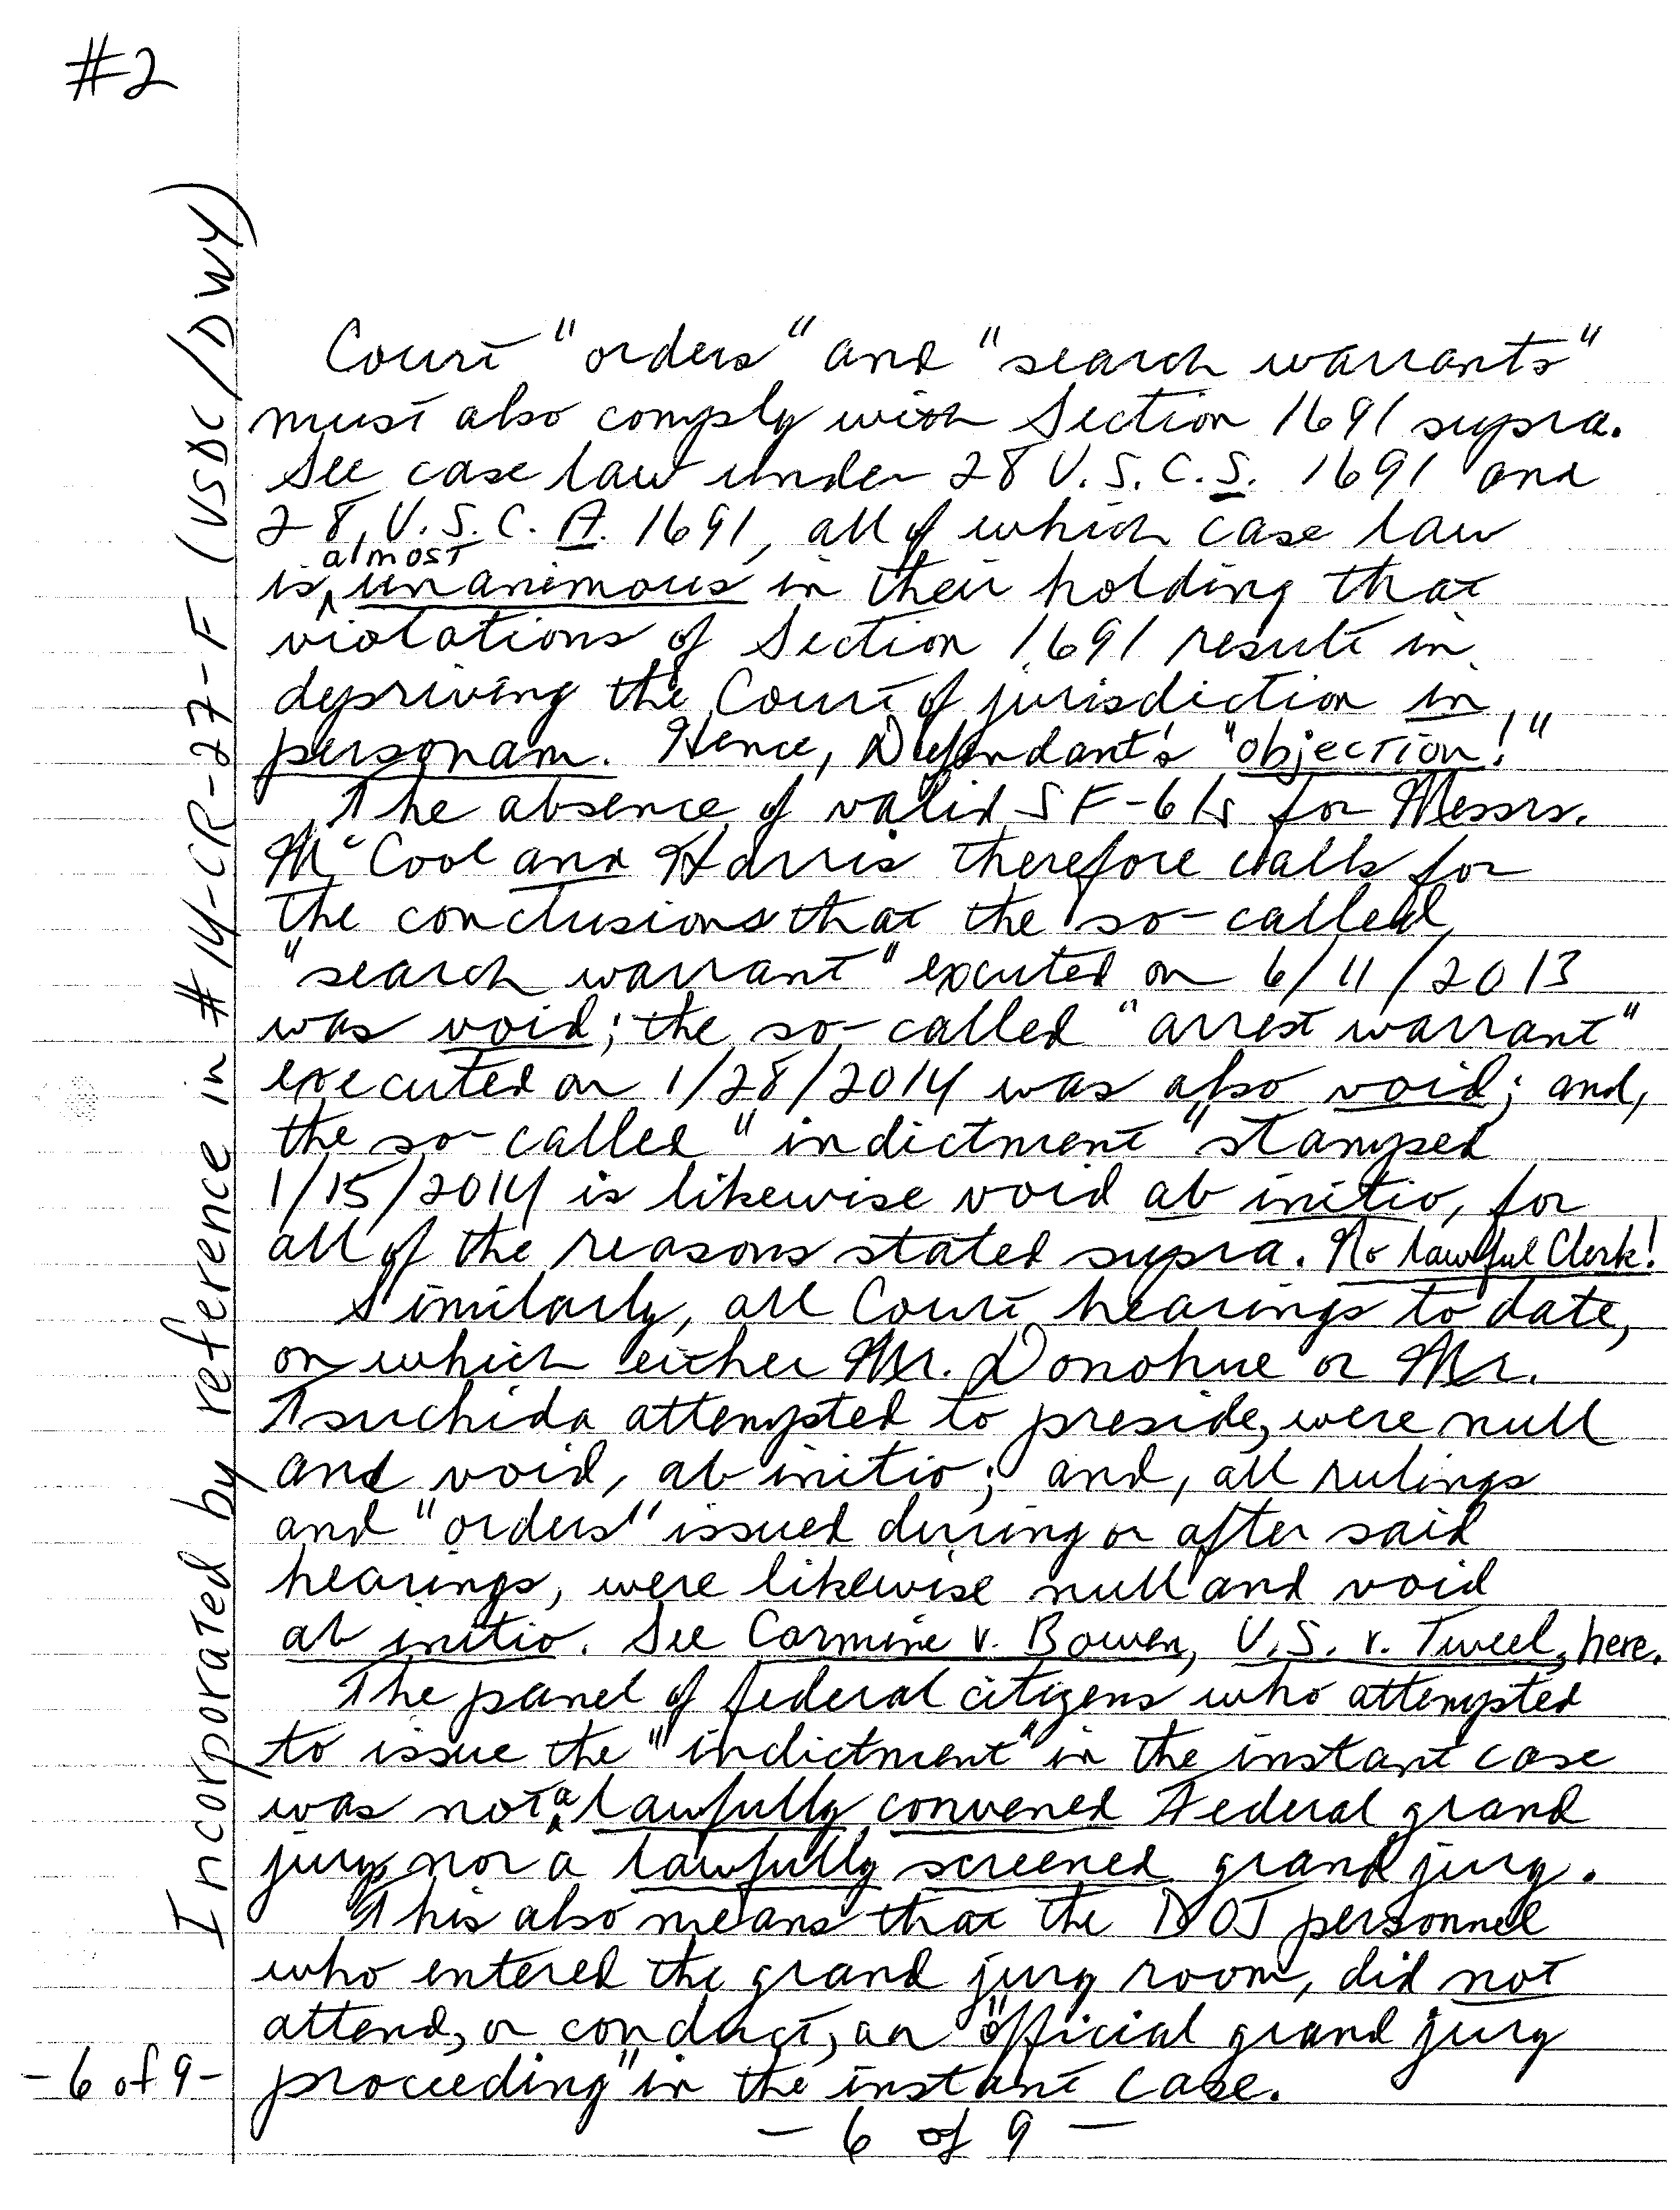 #2
Incorporated by reference in #14-CR-27-F (USDC/DWY)
Court "orders" and "search warrants"
must also comply with Section 1691 supra.
See case law under 28 U.S.C.S. 1691 and
28 U.S.C.A. 1691, all of which case law
is almost unanimous in their holding that
violations of Section 1691 result in
depriving the Court of jurisdiction in
personam. Hence, Defendant's "objection!"
The absence of valid SF-61s for Messrs.
McCool and Harris therefore calls for
the conclusions that the so-called
"search warrant" excuted on 6/11/2013
was void; the so-called "arrest warrant"
executed on 1/28/2014 was also void; and,
the so-called "indictment" stamped
1/15/2014 is likewise void ab initio, for
all of the reasons stated supra. No lawful Clerk!
Similarly, all Court hearings to date,
on which either Mr. Donohue or Mr.
Tsuchida attempted to preside, were null
and void, ab initio; and, all rulings
and "orders" issued during or after said
hearings, were likewise null and void
ab initio. See Carmine v. Bowen, U.S. v. Tweel, here.
The panel of federal citizens who attempted
to issue the "indictment" in the instant case
was not a lawfully convened Federal grand
jury, nor a lawfully screened grand jury.
This also means that the DOJ personnel
who entered the grand jury room, did not
attend, or conduct, an "official grand jury
proceeding" in the instant case.
-6 of 9-
- 6 of 9 -